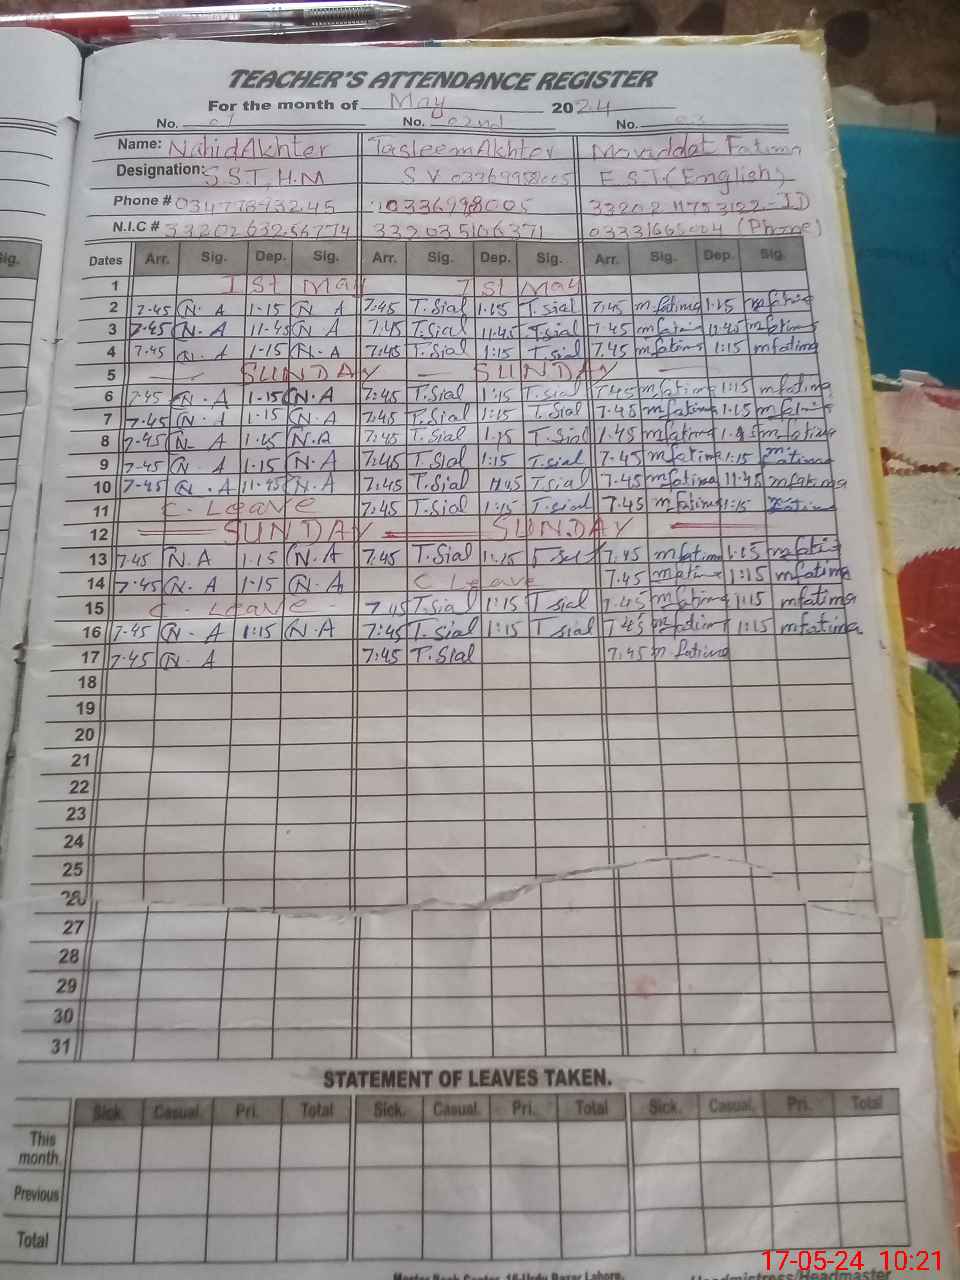 TEACHER'S ATTENDANCE REGISTER
For the month of May 2024
No. 01 No. 02nd No. 03
Name: Nahid Akhter Tasleem Akhter Mavddat Fatima
Designation: S.S.T, H.M S V 03369998005 E.S.T (English)
Phone # 10336998005 ID
N.I.C # 332035106371 03331665004 (Phone)
Sig.
Dates Arr. Sig. Dep. Sig. Arr. Sig. Dep. Sig. Arr. Sig. Dep. Sig.
1 1st May 1st May
2 7-45 N. A 1-15 N A 7:45 T.Sial 1:15 T. sial 7.45 m fatima 1:15 m fatima
3 7-45 N. A 11-45 N A 7:45 T.Sial 11:45 T.sial 7.45 m fatima 11:45 m fatima
4 7-45 N. A 1-15 N. A 7:45 T.Sial 1:15 T.sial 7.45 m fatima 1:15 m fatima
5 — SUNDAY — SUNDAY —
6 7-45 N. A 1-15 N. A 7:45 T.Sial 1:15 T.sial 7.45 m fatima 1:15 m fatima
7 7-45 N. A 1-15 N. A 7:45 T.Sial 1:15 T.Sial 7.45 m fatima 1:15 m fatima
8 7-45 N. A 1.15 N.A 7:45 T.Sial 1:15 T.Sial 7.45 m fatima m fatima
9 7-45 N. A 1.15 N.A 7:45 T.Sial 1:15 T.sial 7.45 m fatima 1:15 m fatima
10 7-45 N. A 11-45 N. A 7:45 T.Sial 11:45 T.sial 7.45 m fatima 11:45 m fatima
11 C. Leave 7:45 T.Sial 1:15 T.sial 7.45 m fatima 1:15 fatima
12 — SUNDAY — SUNDAY —
13 7.45 N. A 1.15 N. A 7.45 T.Sial 1:15 7.45 m fatima 1:15 m fatima
14 7-45 N. A 1-15 N. A C Leave 7.45 m fatima 1:15 m fatima
15 C. Leave - 7.45 T.Sial 1:15 T sial 7.45 m fatima 1:15 m fatima
16 7-45 N. A 1:15 N. A 7:45 T.sial 1:15 T sial 7.45 m fatima 1:15 m fatima
17 7-45 N. A 7:45 T.Sial 7.45 m fatima
18
19
20
21
22
23
24
25
26
27
28
29
30
31
STATEMENT OF LEAVES TAKEN.
Sick. Casual. Pri. Total Sick. Casual. Pri. Total Sick. Casual. Pri. Total
This month.
Previous
Total
Master Book Center, 16-Urdu Bazar Lahore. Headmistress/Headmaster
17-05-24 10:21